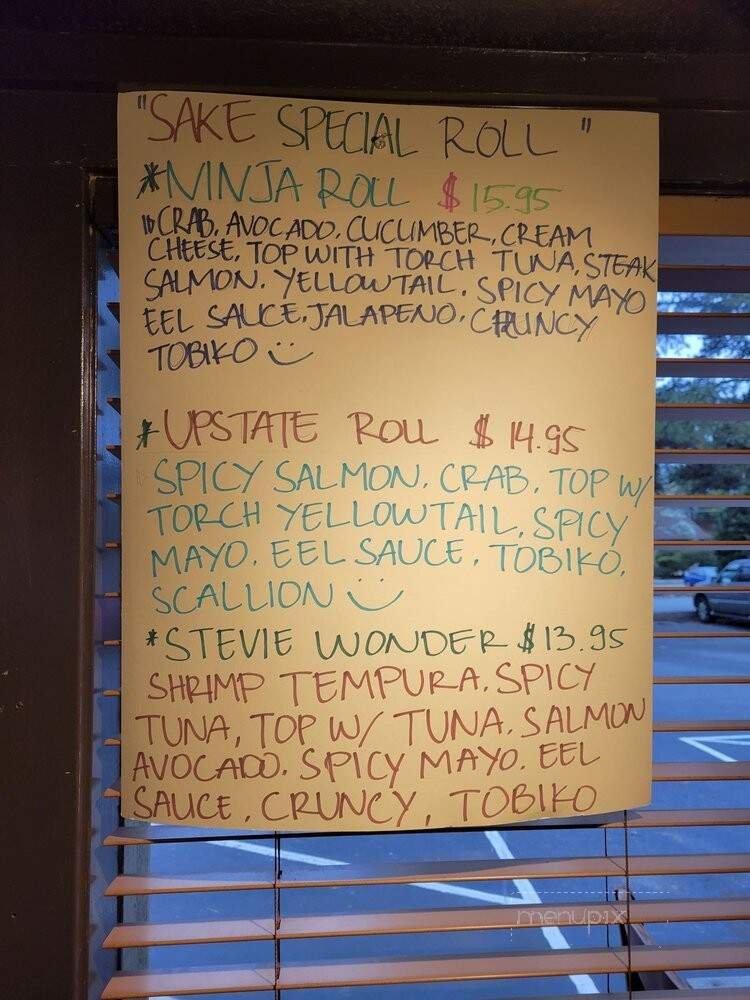 "SAKE SPECIAL ROLL"
*NINJA ROLL $15.95
CRAB, AVOCADO, CUCUMBER, CREAM
CHEESE, TOP WITH TORCH TUNA, STEAK
SALMON, YELLOWTAIL, SPICY MAYO
EEL SAUCE, JALAPENO, CRUNCY
TOBIKO
*UPSTATE ROLL $14.95
SPICY SALMON, CRAB, TOP W/
TORCH YELLOWTAIL, SPICY
MAYO, EEL SAUCE, TOBIKO,
SCALLION
*STEVIE WONDER $13.95
SHRIMP TEMPURA, SPICY
TUNA, TOP W/ TUNA, SALMON
AVOCADO, SPICY MAYO, EEL
SAUCE, CRUNCY, TOBIKO
menupix